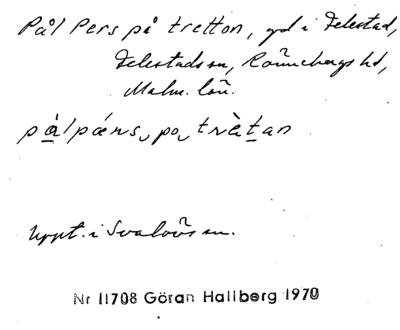 Pål Pers på tretton, gd i Felestad,
Felestads sn, Rönnebergs hd,
Malm. län.
pålpæns po trætan
Uppt. i Svalövs sn.
Nr 11708 Göran Hallberg 1970